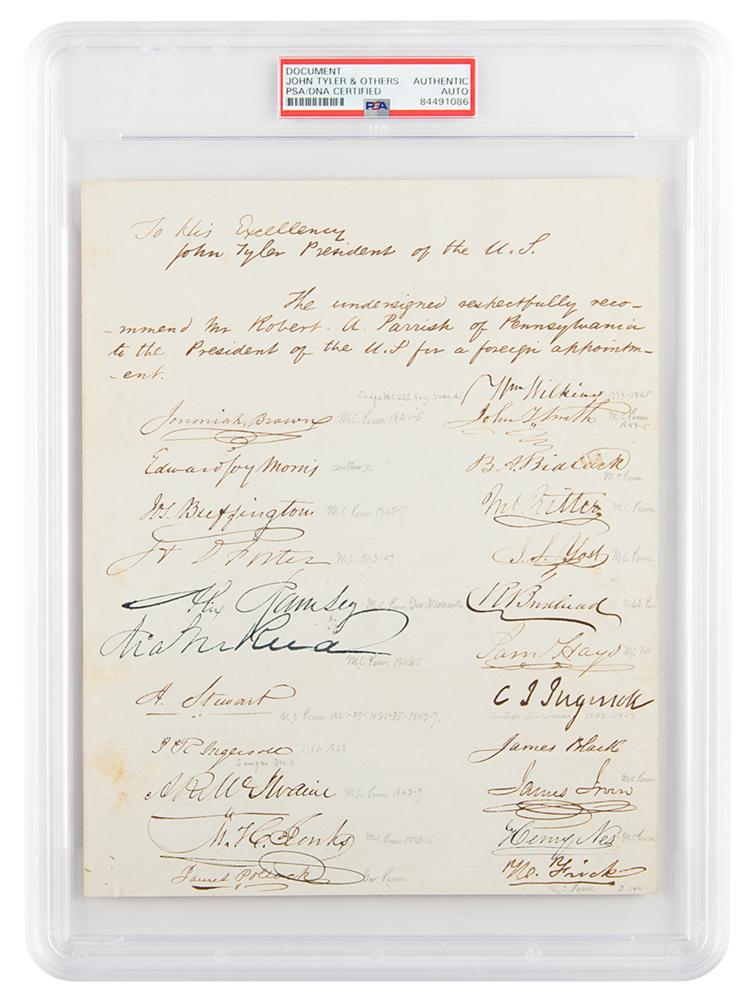 DOCUMENT
JOHN TYLER & OTHERS AUTHENTIC
PSA/DNA CERTIFIED AUTO
PSA 84491086
To His Excellency
John Tyler President of the U.S.
The undersigned respectfully reco-
-mmend Mr Robert. A. Parrish of Pennsylvania
to the President of the U.S for a foreign appointm-
-ent.
Wm Wilkins 1779-1865
Jeremiah Brown M.C. Penn 1841-5
John T. Smith M.C. Penn 1843-5
Edward Joy Morris author
B. A. Bidlack M.C. Penn
Jos. Buffington M.C. Penn 1843-7
Ritter M.C. Penn
H D Foster M.C. 1843-47
J. S. Yost M.C. Penn
Alex Ramsey M.C. Penn
Brodhead
M.C. Penn
Saml Hays
A. Stewart M.C. Penn
C J Ingersoll
J R Ingersoll
Lawyer M.C.
James Black
A R McIlvaine M.C. Penn 1843-9
James Irvin M.C. Penn
M. H. Jenks M.C. Penn 1843-5
Henry Nes M.C. Penn
James Pollock Gov Penn.
Frick
M.C. Penn